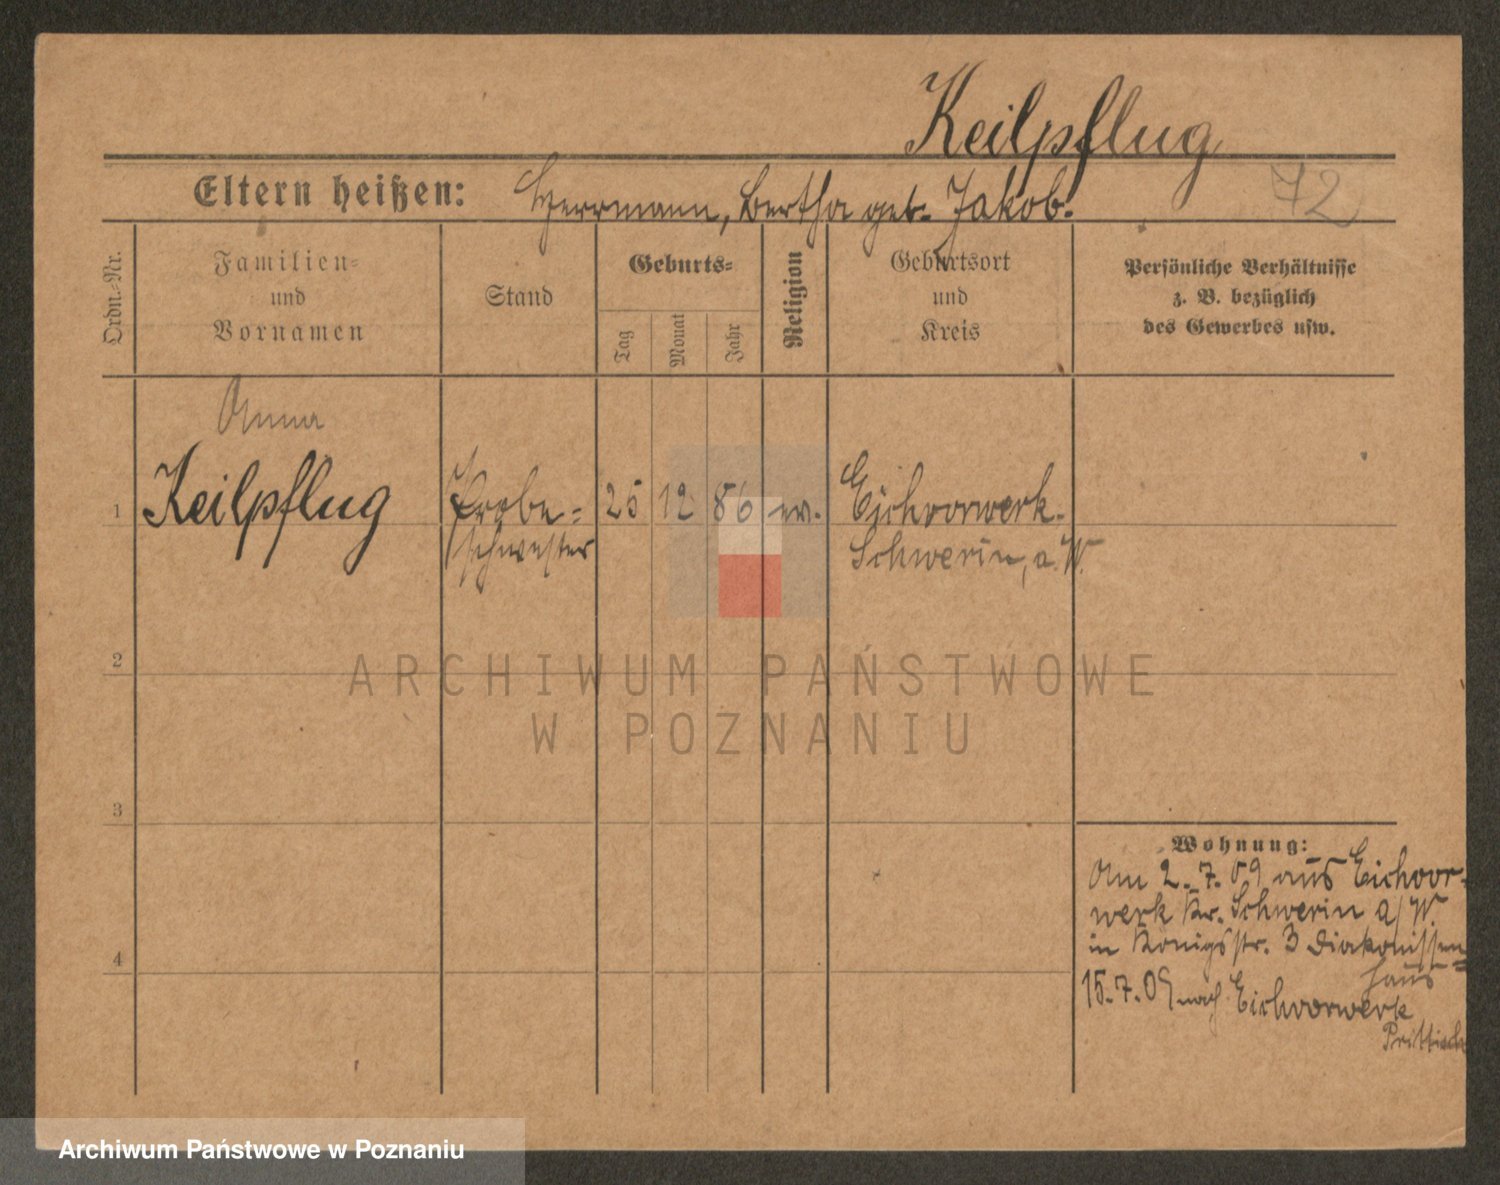 Keilpflug
Eltern heißen: Herrmann, Bertha geb. Jakob.
72
Ordn.-Nr.
Familien-
und
Vornamen
Stand
Geburts-
Tag
Monat
Jahr
Religion
Geburtsort
und
Kreis
Persönliche Verhältnisse
z. B. bezüglich
des Gewerbes usw.
Anna
1 Keilpflug Probe- 25 12 86 ev. Eichvorwerk.
schwester Schwerin, a. W.
2
ARCHIWUM PAŃSTWOWE
W POZNANIU
3
Wohnung:
Am 2.7.09 aus Eichvor-
werk Kr. Schwerin a/W.
in Königsstr. 3 Diakonissen=
haus
15.7.09 nach Eichvorwerk
Prittisch
4
Archiwum Państwowe w Poznaniu